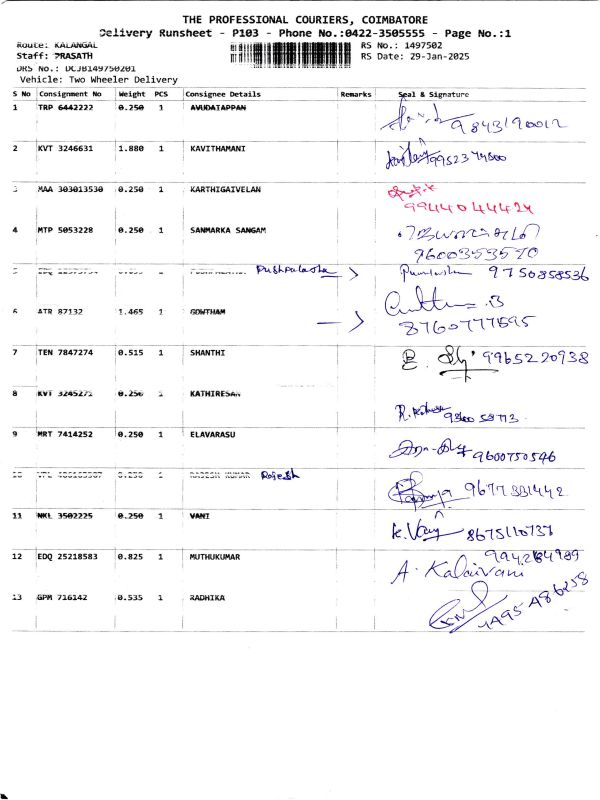 THE PROFESSIONAL COURIERS, COIMBATORE
Delivery Runsheet - P103 - Phone No.:0422-3505555 - Page No.:1
Route: KALANGAL RS No.: 1497502
Staff: PRASATH RS Date: 29-Jan-2025
DRS No.: DCJB149750201
Vehicle: Two Wheeler Delivery
S No Consignment No Weight PCS Consignee Details Remarks Seal & Signature
1 TRP 6442222 0.250 1 AVUDAIAPPAN 9843190012
2 KVT 3246631 1.880 1 KAVITHAMANI
3 MAA 303013530 0.250 1 KARTHIGAIVELAN 9944044424
4 MTP 5053228 0.250 1 SANMARKA SANGAM
9600353570
5 1 Pushpalatha 9750858536
6 ATR 87132 1.465 1 GOWTHAM
8760777595
7 TEN 7847274 0.515 1 SHANTHI 9965220938
8 KVT 3245272 0.250 1 KATHIRESAN
9 MRT 7414252 0.250 1 ELAVARASU 9600750546
10 0.250 1 RAJESH KUMAR Rajesh 9677331442
11 NKL 3502225 0.250 1 VANI K. Vani 8675110737
12 EDQ 25218583 0.825 1 MUTHUKUMAR
A. Kalaivani
13 GPM 716142 0.535 1 RADHIKA